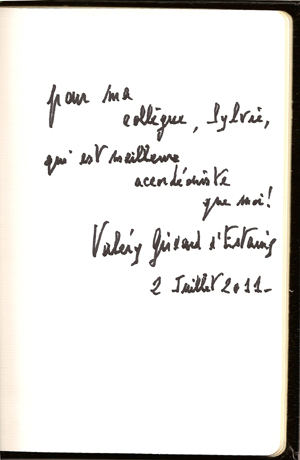 pour ma
collègue, Sylvie,
qui est meilleure
accordéoniste
que moi!
Valéry Giscard d'Estaing
2 Juillet 2011-